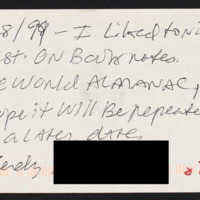 8/99 - I liked ton
st. ON Booknotes.
e WORLD ALMANAC,
ope it will Be repeate
a LATER date